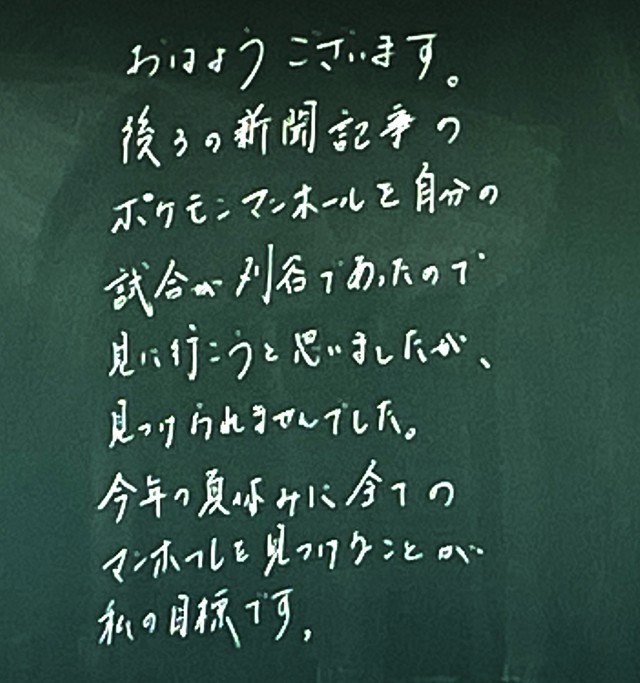 おはようございます。
後ろの新聞記事の
ポケモンマンホールを自分の
試合が刈谷であったので
見に行こうと思いましたが、
見つけられませんでした。
今年の夏休みに全ての
マンホールを見つけることが
私の目標です。